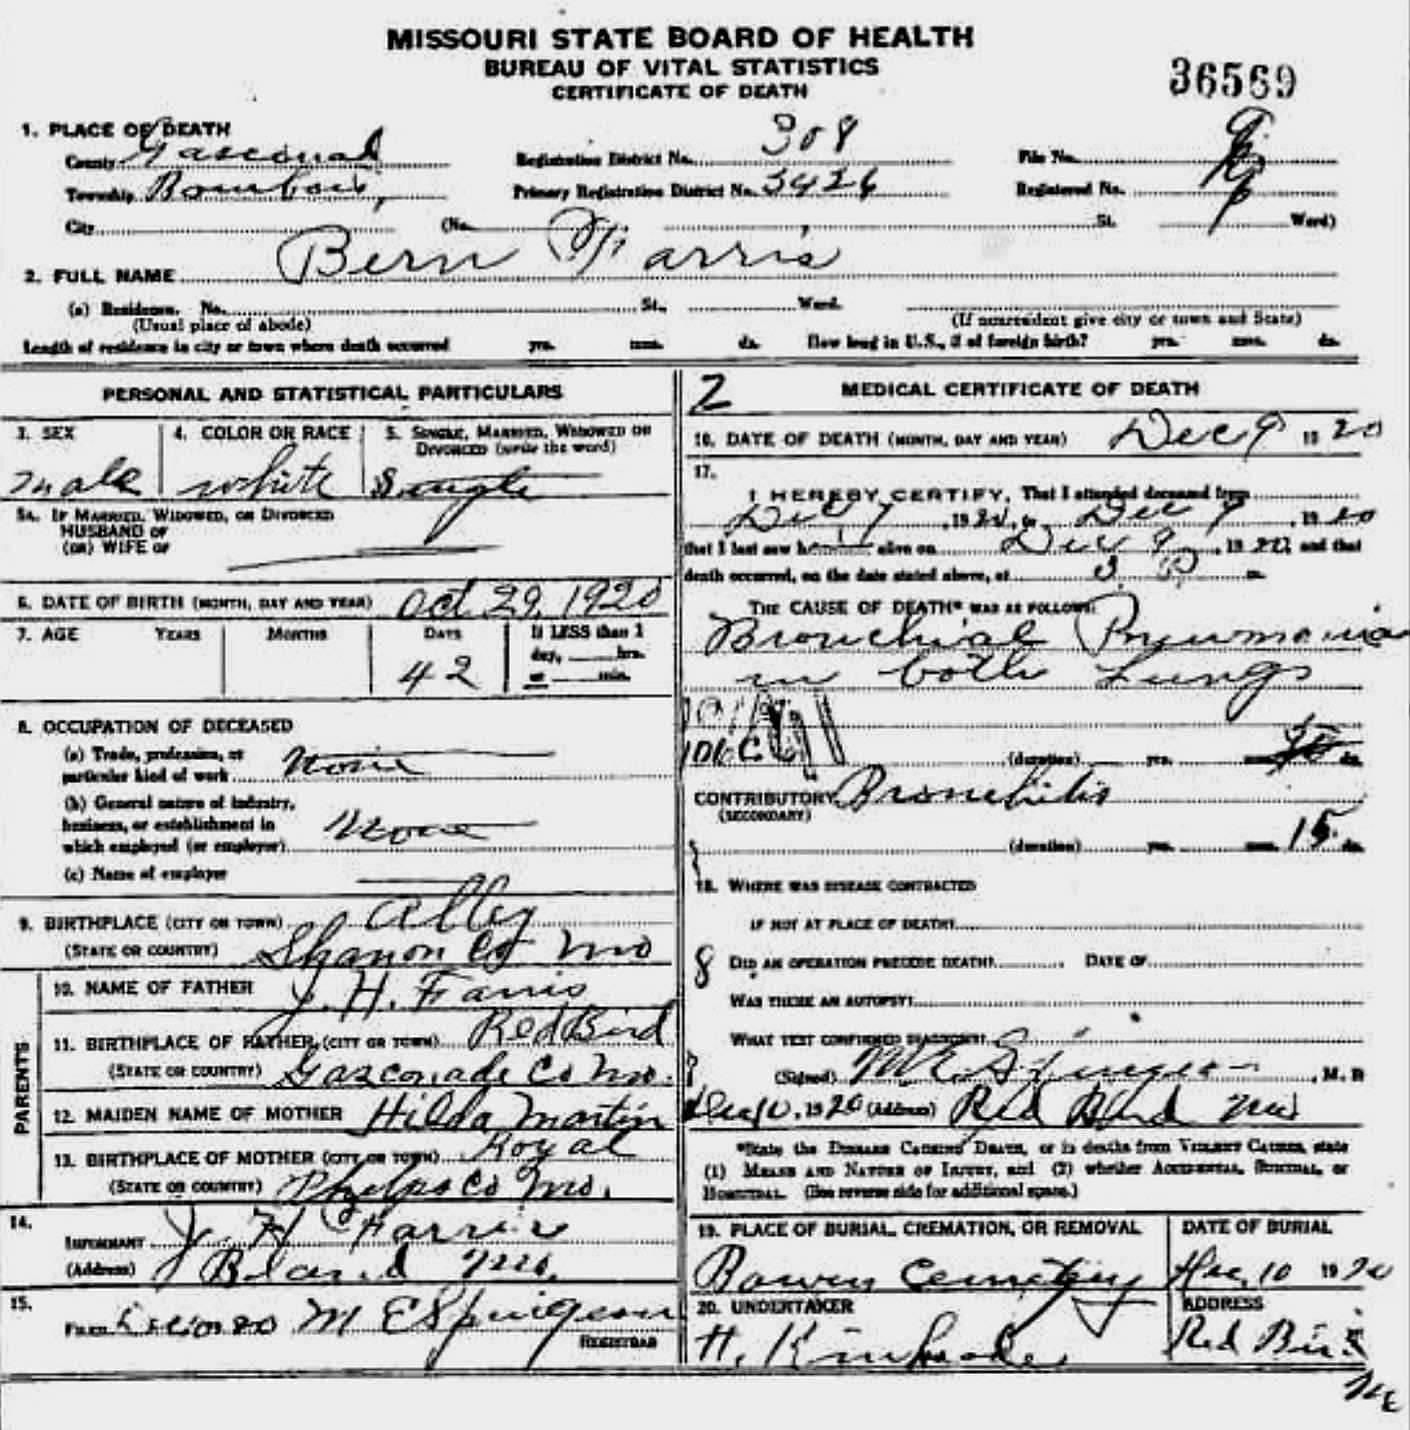 MISSOURI STATE BOARD OF HEALTH
BUREAU OF VITAL STATISTICS
CERTIFICATE OF DEATH
36569
1. PLACE OF DEATH
County Gasconad Registration District No. 308 File No.
Township Bourbois, Primary Registration District No. 3426 Registered No.
City (No. St. Ward)
2. FULL NAME Bern Farris
(a) Residence. No. St., Ward.
(Usual place of abode) (If nonresident give city or town and State)
Length of residence in city or town where death occurred yrs. mos. ds. How long in U.S., if of foreign birth? yrs. mos. ds.
PERSONAL AND STATISTICAL PARTICULARS
3. SEX 4. COLOR OR RACE 5. SINGLE, MARRIED, WIDOWED OR DIVORCED (write the word)
male white Single
5A. IF MARRIED, WIDOWED, OR DIVORCED
HUSBAND OF
(OR) WIFE OF
6. DATE OF BIRTH (MONTH, DAY AND YEAR) Oct 29, 1920
7. AGE YEARS MONTHS DAYS If LESS than 1 day, hrs. or min.
42
8. OCCUPATION OF DECEASED
(a) Trade, profession, or
particular kind of work None
(b) General nature of industry,
business, or establishment in
which employed (or employer) None
(c) Name of employer
9. BIRTHPLACE (CITY OR TOWN) Alley
(STATE OR COUNTRY) Shanon Co Mo
PARENTS
10. NAME OF FATHER J. H. Farris
11. BIRTHPLACE OF FATHER (CITY OR TOWN) Red Bird
(STATE OR COUNTRY) Gasconade Co Mo.
12. MAIDEN NAME OF MOTHER Hilda Martin
13. BIRTHPLACE OF MOTHER (CITY OR TOWN) Royal
(STATE OR COUNTRY) Phelps Co Mo.
14.
INFORMANT J. H Farris
(Address) Bland Mo.
15.
FILED M E Spurgeon
REGISTRAR
2 MEDICAL CERTIFICATE OF DEATH
16. DATE OF DEATH (MONTH, DAY AND YEAR) Dec 9 1920
17.
I HEREBY CERTIFY, That I attended deceased from
Dec 7, 1920, to Dec 9, 1920
that I last saw h alive on Dec 9, 1920 and that
death occurred, on the date stated above, at 3 P m.
THE CAUSE OF DEATH* WAS AS FOLLOWS:
Bronchial Pneumonia
in both Lungs
(duration) yrs. mos. ds.
CONTRIBUTORY Bronchitis
(SECONDARY)
(duration) yrs. mos. 15 ds.
18. WHERE WAS DISEASE CONTRACTED
IF NOT AT PLACE OF DEATH?
8 DID AN OPERATION PRECEDE DEATH? DATE OF
WAS THERE AN AUTOPSY?
WHAT TEST CONFIRMED DIAGNOSIS?
(Signed) M. E. Spurgeon, M. D
Dec 10, 1920 (Address) Red Bird Mo
*State the DISEASE CAUSING DEATH, or in deaths from VIOLENT CAUSES, state
(1) MEANS AND NATURE OF INJURY, and (2) whether ACCIDENTAL, SUICIDAL, or
HOMICIDAL. (See reverse side for additional space.)
19. PLACE OF BURIAL, CREMATION, OR REMOVAL DATE OF BURIAL
Bowen Cemetery Dec, 10 1920
20. UNDERTAKER ADDRESS
H. Red Bird
Mo